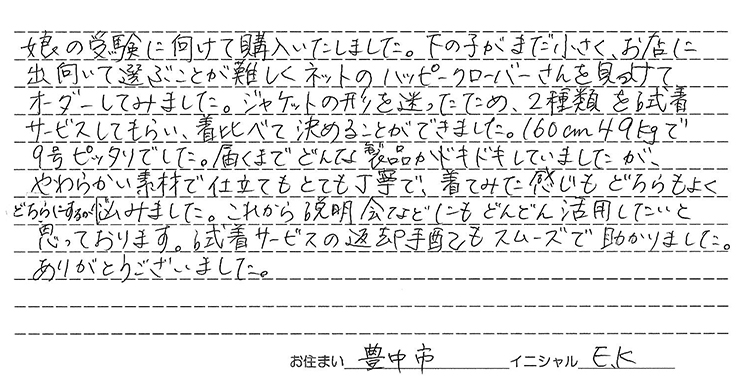 娘の受験に向けて購入いたしました。下の子がまだ小さく、お店に
出向いて選ぶことが難しくネットのハッピークローバーさんを見つけて
オーダーしてみました。ジャケットの形を迷ったため、2種類を試着
サービスしてもらい、着比べて決めることができました。160cm49kgで
9号ピッタリでした。届くまでどんな製品かドキドキしていましたが、
やわらかい素材で仕立てもとても丁寧で、着てみた感じもどちらもよく
どちらにするか悩みました。これから説明会などにもどんどん活用したいと
思っております。試着サービスの返却手配もスムーズで助かりました。
ありがとうございました。
お住まい 豊中市 イニシャル E.K